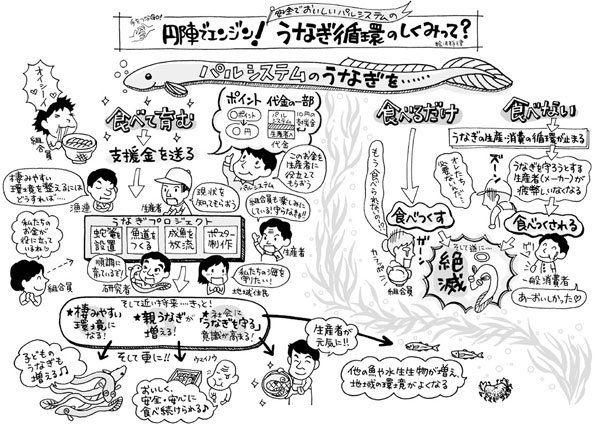 安全でおいしいパルシステムの
円陣でエンジン! うなぎ循環のしくみって?
パルシステムのうなぎを……
オイシイ
組合員
食べて育む
支援金を送る
ポイント
代金の一部
○ポイント
○円
パルシステム
生産者
10円の割戻金
代金
このお金を生産者に役立ててもらおう
パルシステム
棲みやすい環境を整えるにはどうすれば…
漁連
生産者
現状を知ってもらおう
組合員も楽しみにしている!守らなきゃ!!
生産者
うなぎプロジェクト
蛇篭を設置
魚道をつくる
成魚を放流
ポスター制作
私たちのお金が役に立っているわ♪
組合員
順調に育っているぞ!
研究者
私たちの海を守りたい!
地域住民
そして近い将来……きっと!
★棲みやすい環境になる!
★親うなぎが増える!
★社会に「うなぎを守る」意識が高まる!
子どものうなぎも増える♪
そして更に!!
ウメイノウ
おいしく、安全・安心に食べ続けられる♪
生産者が元気に!!
他の魚や水生生物が増え、地域の環境がよくなる
食べるだけ
もう食べられないの!?
食べつくす
ガーン
カラッポ
組合員
そして遂に…
絶滅
食べない
うなぎの生産・消費の循環が止まる
オレたち必要ないんだ…
ズーン
うなぎを守ろうとする生産者(メーカー)が疲弊しいなくなる
食べつくされる
ガーン
一般消費者
あーおいしかった♡